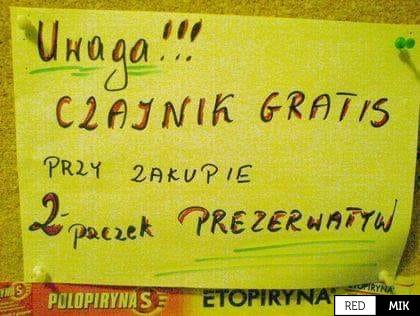 Uwaga!!!
CZAJNIK GRATIS
PRZY ZAKUPIE
2-paczek PREZERWATYW
POLOPIRYNA S ETOPIRYNA
RED MIK